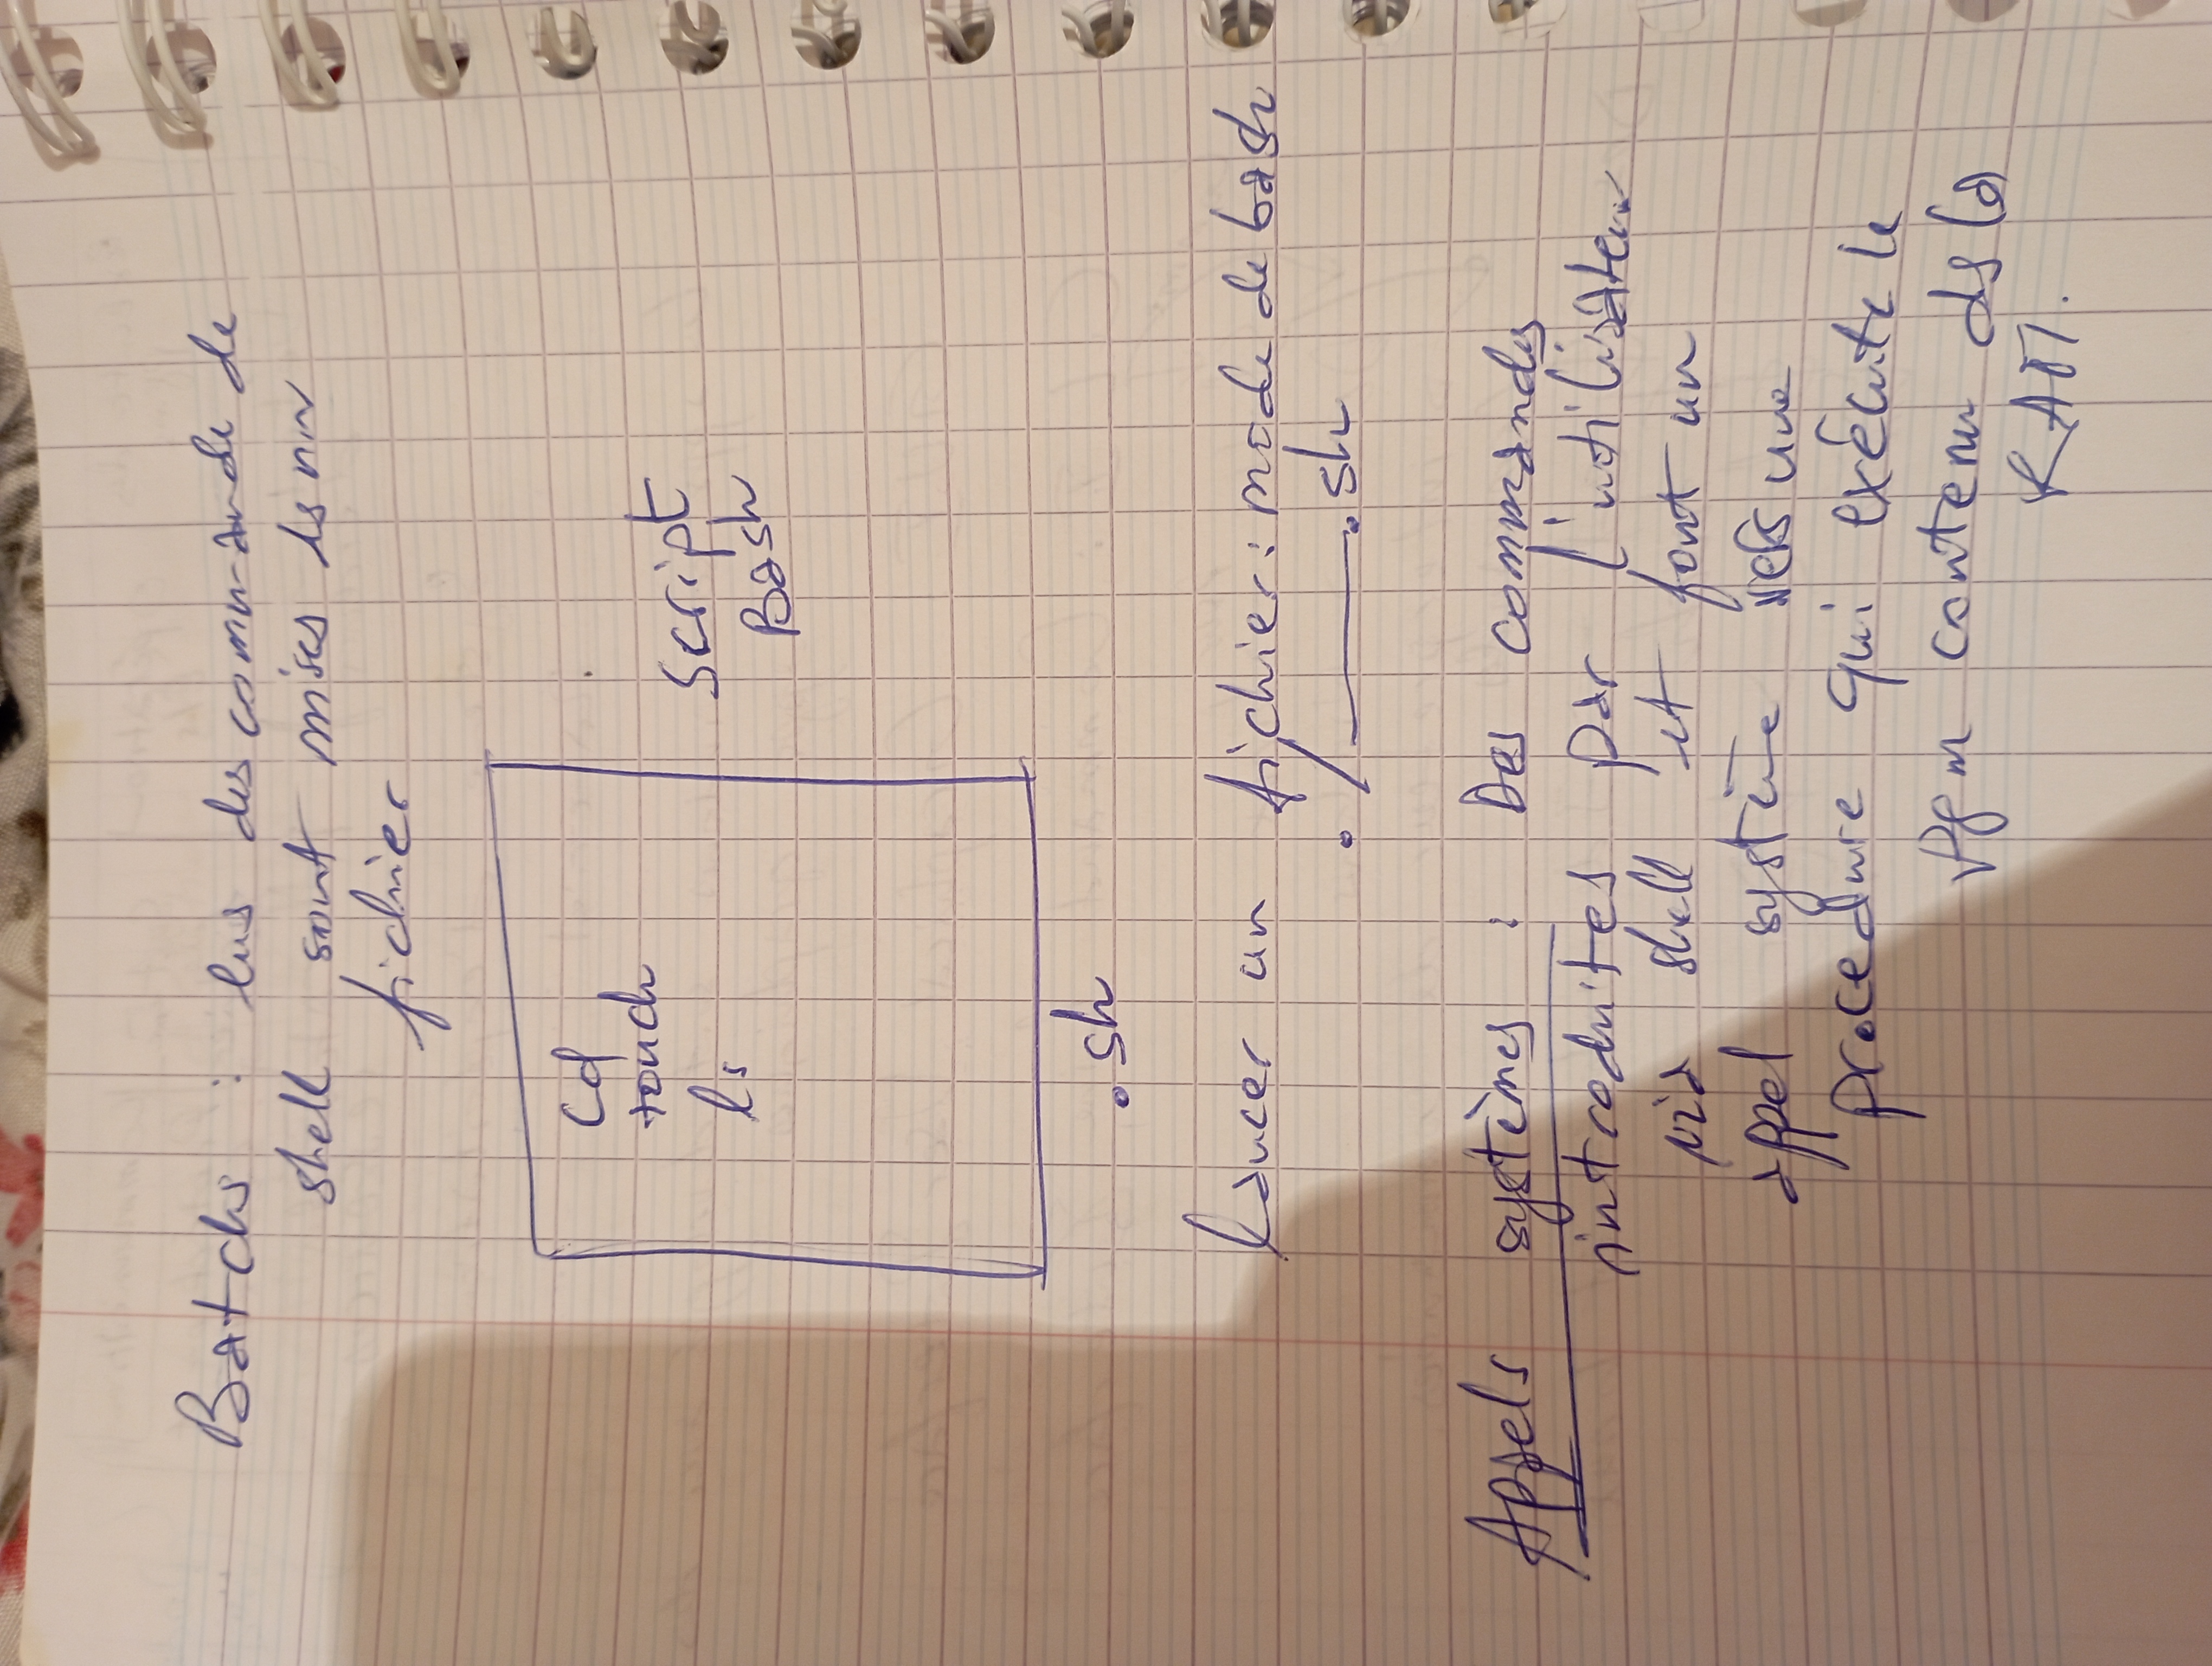 Batchs : les des commande de
shell sont mises ds un
fichier
cd
touch
ls
Script
Bash
.sh
Lancer un fichier : mode de bash
./______.sh
Appels systèmes : Des commandes
introduites par l'utilisateur
via shell et font un
appel système vers une
procedure qui exécute le
pgm contenu ds la
RAM.